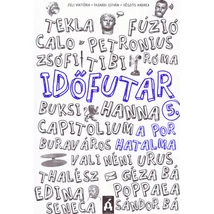 ZÁLI VIKTÓRIA · TASNÁDI ISTVÁN · VÉSSEY ANDREA
TEKLA FÚZIÓ
CALO PETRONIUS
ZSÓFI TIBI ROMA
IDŐFUTÁR
BUKSI HANNA 5.
CAPITOLIUM A POR
BURAVÁROS HATALMA
VALI NÉNI URUS
THALÉSZ GÉZA BÁ
EDINA Á POPPAEA
SENECA SÁNDOR BÁ